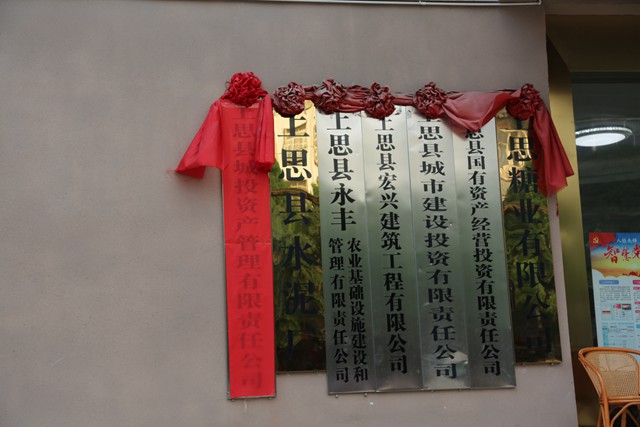 上思县城投资产管理有限责任公司
上思县水泥厂
上思县永丰
农业基础设施建设和
管理有限责任公司
上思县宏兴建筑工程有限公司
上思县城市建设投资有限责任公司
思县国有资产经营投资有限责任公司
上思糖业有限公司